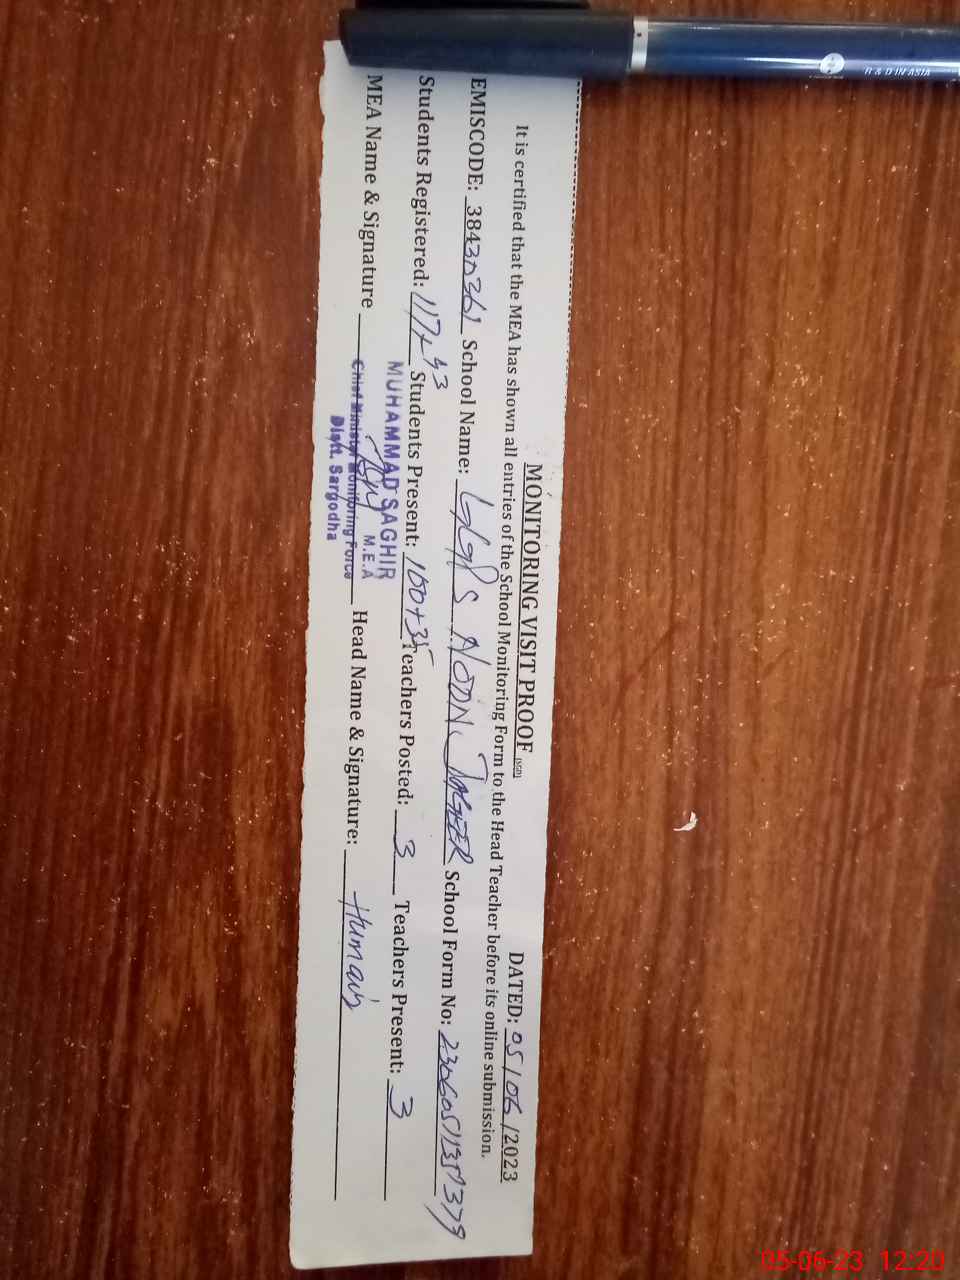 R & D IN ASIA
MONITORING VISIT PROOF (SGD)
DATED: 05/06/2023
It is certified that the MEA has shown all entries of the School Monitoring Form to the Head Teacher before its online submission.
EMISCODE: 38430361 School Name: GGPS NOON School Form No:
Students Registered: 117+43 Students Present: 100+35 Teachers Posted: 3 Teachers Present: 3
MEA Name & Signature Head Name & Signature: Humaib
MUHAMMAD SAGHIR
M.E.A
Chief Minister Monitoring Force
Distt. Sargodha
05-06-23 12:20